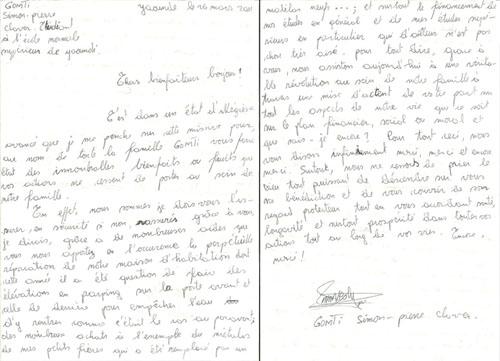 GOMTI
Simon-pierre
Claver Etudiant
à l'école normale
supérieure de yaoundé.
Yaoundé le 26 mars 2011
Chers bienfaiteurs bonjour!
C'est dans un état d'allégresse
avancé que je me penche sur cette missive pour,
au nom de toute la famille GOMTI vous faire
état des innombrables bienfaits ou fruits que
vos actions ne cessent de porter au sein de
notre famille.
En effet, nous sommes je dois vous l'as-
surer, en sécurité si non rassurés grâce à vous,
je dirais, grâce à de nombreuses aides que
vous nous apportez en l'occurence la perpétuelle
réparation de notre maison d'habitation dont
cette année il a été question de faire des
élévations en parping sur la porte avant et
celle de derrière pour empêcher l'eau
d'y rentrer comme c'était le cas au paravant;
des nombreux achats à l'exemple du matelas
de mes petits frères qui a été remplacé par un
matelas neuf...; et surtout le financement de
nos études en général et de mes études supé-
rieures en particulier qui d'ailleurs n'est pas
chose très aisé. pour tout dire, grâce à
vous, nous assistons aujourd'hui à une vérita-
ble révolution au sein de notre famille à
travers une mise de votre part sur
tout les aspects de notre vie que ce soit
sur le plan financier, social ou moral et
que sais-je encore? Pour tout ceci, nous
vous disons infiniment merci, merci et encore
merci. Surtout, nous ne cessons de prier le
Dieu tout puissant de déscendre sur vous
sa bénédiction et de vous couvrir de son
regard protecteur tout en vous accordant santé,
longévité et surtout prospérité dans toutes vos
actions tout au long de vos vies. Encore
merci!
GOMTI Simon-pierre Claver.